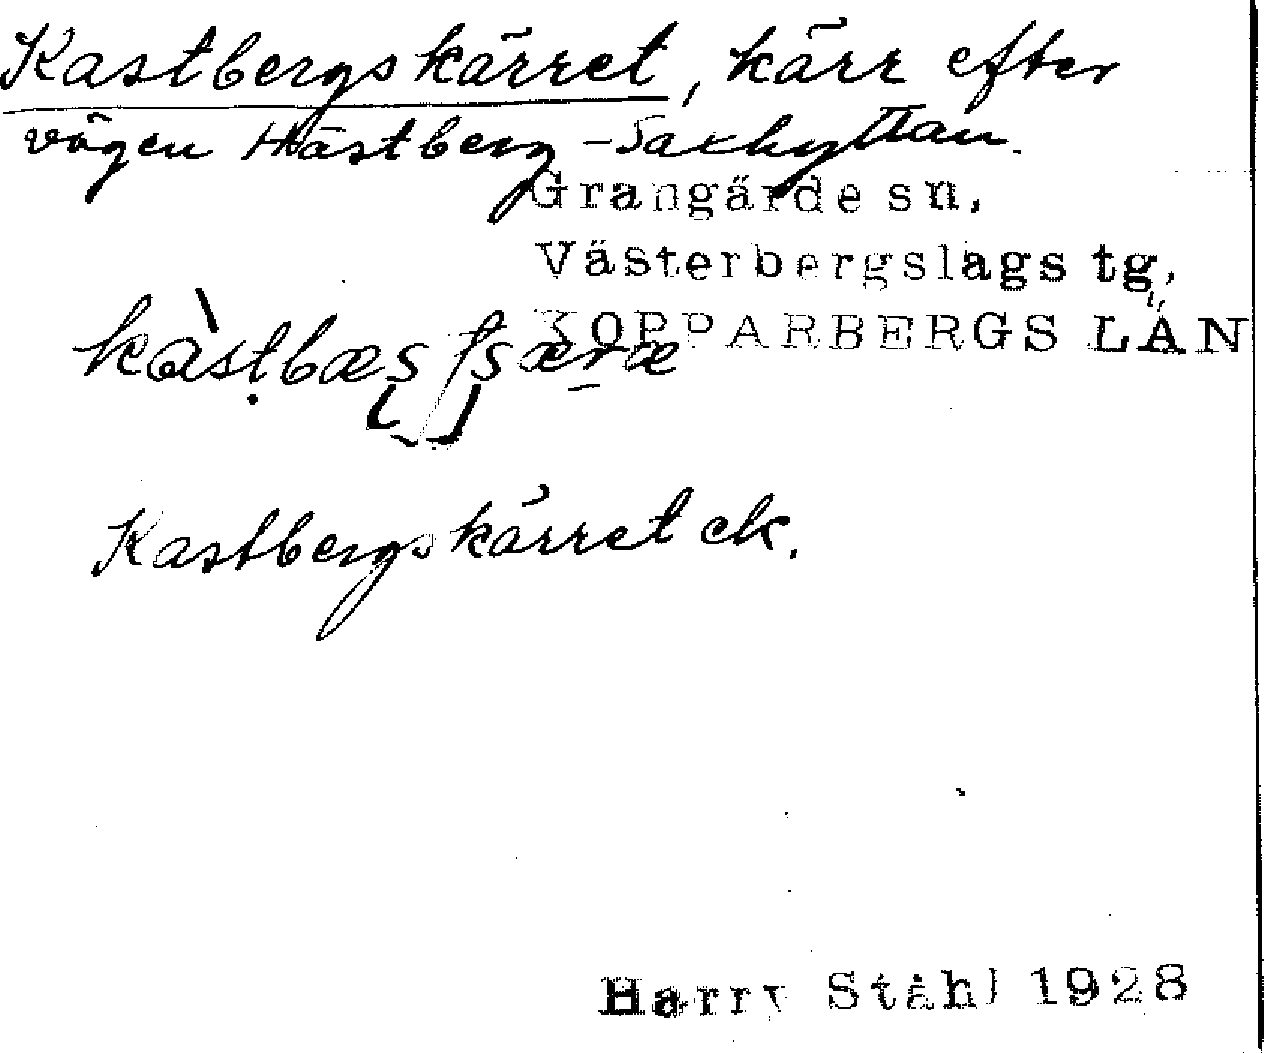 Kastbergskärret, kärr efter
vägen Hästberg - Saxhyttan.
Grangärde sn,
Västerbergslags tg,
KOPPARBERGS LÄN
Kastbergskärret ek.
Harry Ståhl 1928